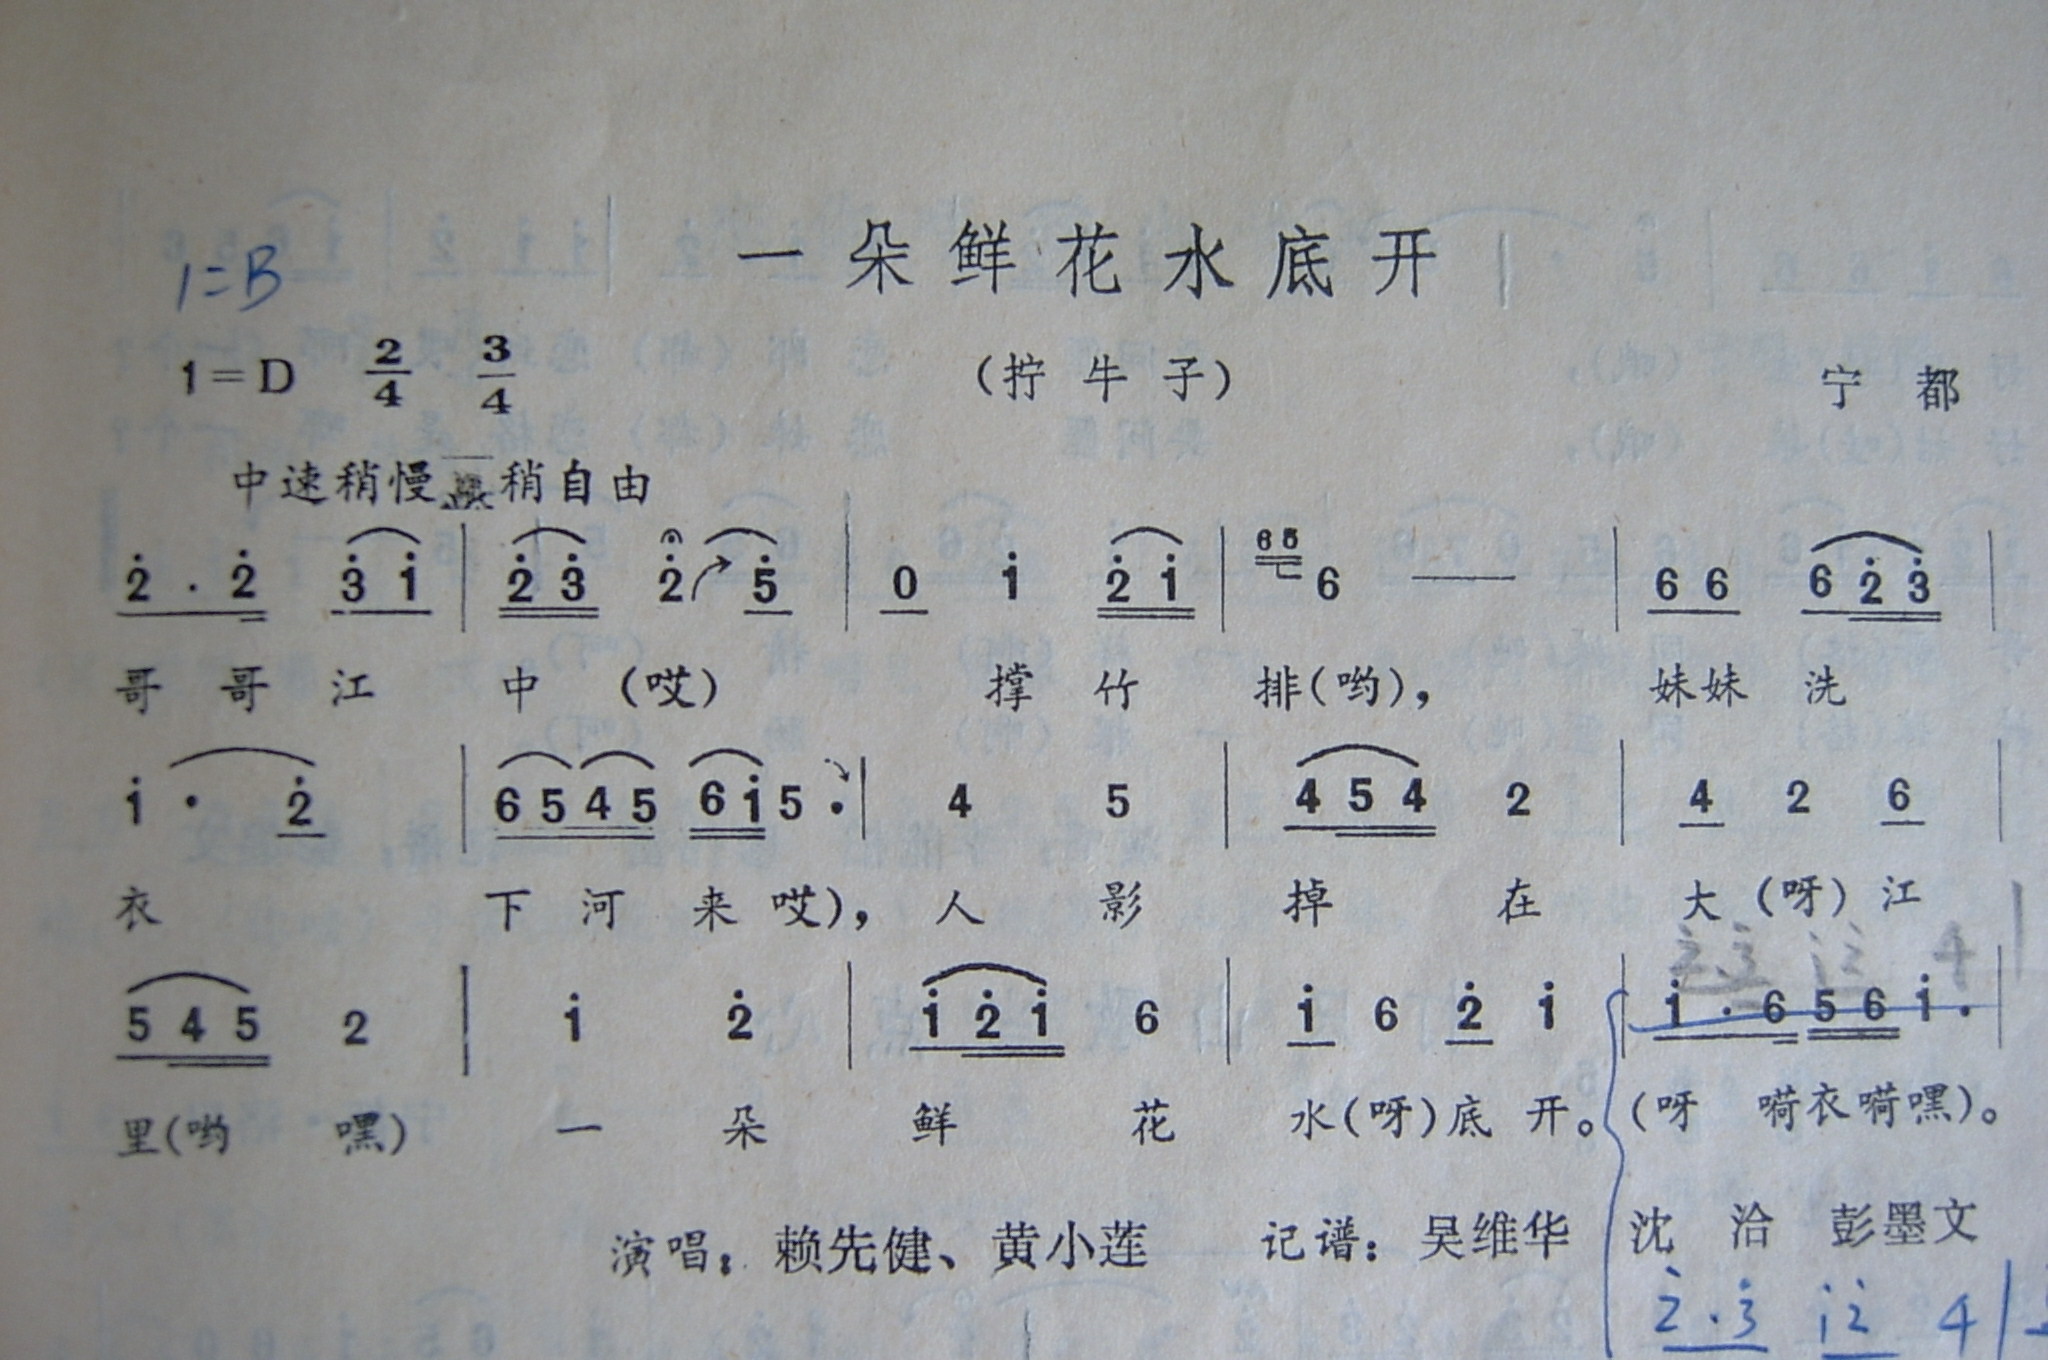 一朵鲜花水底开
1=B
1=D 2/4 3/4 (拧牛子) 宁都
中速稍慢 稍自由
2̇ · 2̇ 3̇ 1̇ | 2̇ 3̇ 2̇ 5̇ | 0 1̇ 2̇ 1̇ | 65 6 — | 6 6 6 2̇ 3̇ |
哥哥江 中 (哎) 撑竹 排(哟), 妹妹洗
1̇ · 2̇ | 6 5 4 5 6 1̇ 5 · | 4 5 | 4 5 4 2 | 4 2 6 |
衣 下河来哎), 人影 掉在 大(呀)江
2̇ · 3̇ 1̇ 2̇ 4 |
5 4 5 2 | 1̇ 2̇ | 1̇ 2̇ 1̇ 6 | 1̇ 6 2̇ 1̇ | 1̇ · 6 5 6 1̇ · |
里(哟 嘿) 一朵 鲜花 水(呀)底开。 (呀 嗬衣嗬嘿)。
演唱: 赖先健、黄小莲 记谱: 吴维华 沈洽 彭墨文
2̇ · 3̇ 1̇ 2̇ 4 |